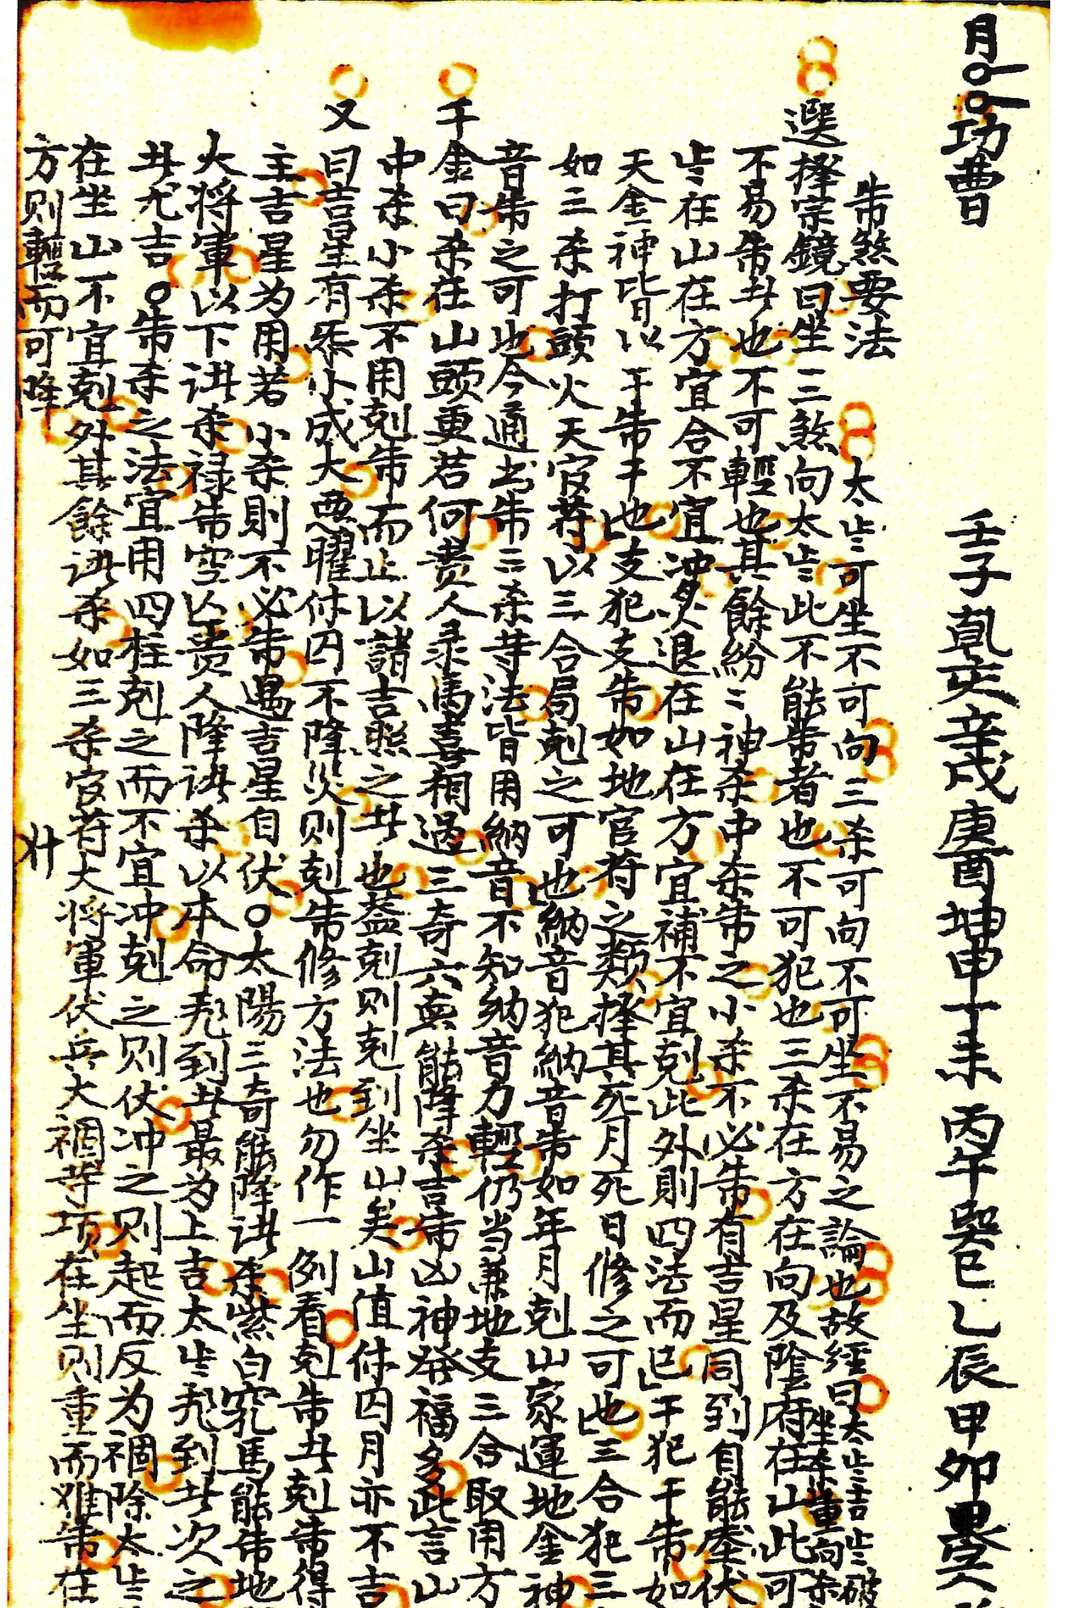 月 功曹 壬子乾亥辛戌庚酉坤申丁未丙午巽巳乙辰甲卯艮
制煞要法 太岁可坐不可向三杀可向不可坐不易之論也故經曰太岁
坐杀重向杀
選擇宗鏡曰坐三煞向太岁此不能制者也不可犯也三杀在方在向及陰府在山此可
不易制者也不可輕也其餘紛二神杀中杀制之小杀不必制有吉星同到自能壓伏
岁在山在方宜合不宜冲灸退在山在方宜補不宜剋此外則四法而已干犯干制如
天金神皆以干制干也支犯支制如地官符之類擇其死月死日修之可也三合犯三
如三杀打頭火天官符以三合局剋之可也納音犯納音制如年月剋山家運地金神
音制之可也今通书制三杀等法皆用納音不知納音力輕仍当兼地支三合取用方
千金曰杀在山頭重若何贵人录馬喜相遇三奇六 能降杀吉制凶神發福多此言山
中杀小杀不用剋制而止以諸吉照之者也盖剋则剋到坐山矣山值休囚月亦不吉
又曰吉星有氣小成大恶曜休囚不降災则剋制修方法也勿作一例看剋制者剋制得
主吉星为用若小杀則不必制遇吉星自伏○太陽三奇能降诸杀紫白窍馬能制地
大将軍以下诸杀禄制空亡贵人降诸杀以本命 到者最为上吉太岁 到者次之
者尤吉○制杀之法宜用四柱剋之而不宜冲剋之则伏冲之则起而反为禍除太岁
在坐山不宜剋外其餘诸杀如三杀官符大将軍伏兵大禍等項在坐则重而难制在
方则輕而可降